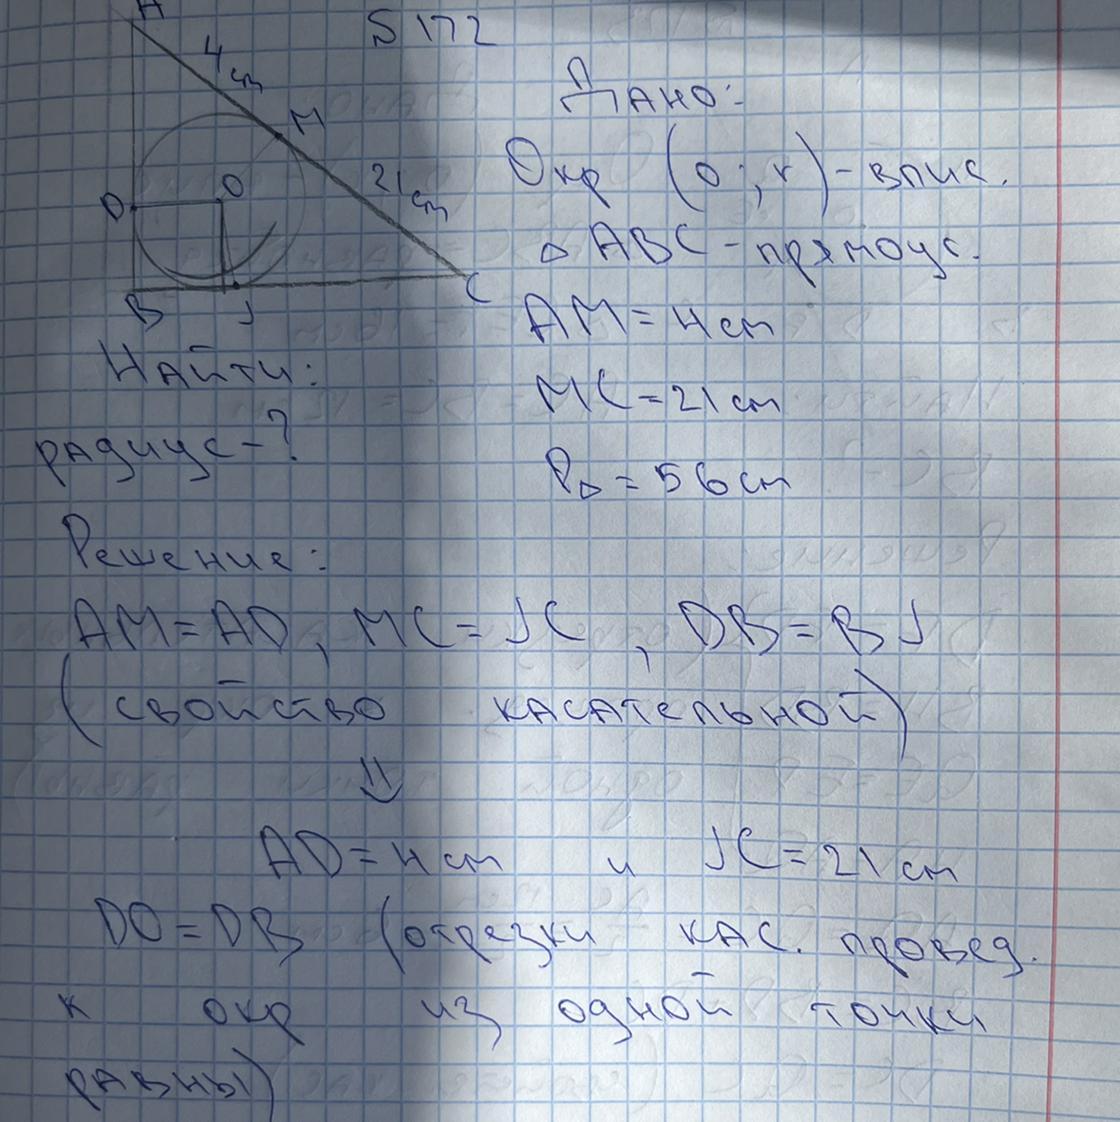 S 172
A
4 см
M
21 см
O
D
B
J
C
Дано:
Окр (o; r) - впис.
△ ABC - прямоуг.
AM = 4 см
MC = 21 см
P△ = 56 см
Найти:
радиус - ?
Решение:
AM = AD, MC = JC, DB = BJ
(свойство касательной)
⇓
AD = 4 см и JC = 21 см
DO = DB (отрезки кас. провед.
к окр из одной точки
равны)